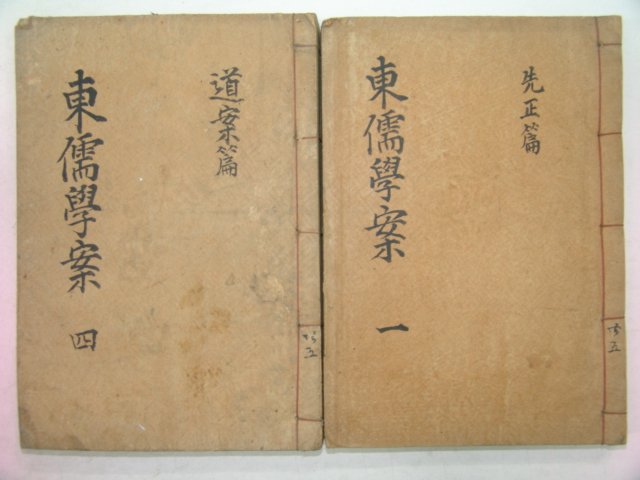 先正篇
東儒學案 一
共五
道案篇
東儒學案 四
共五